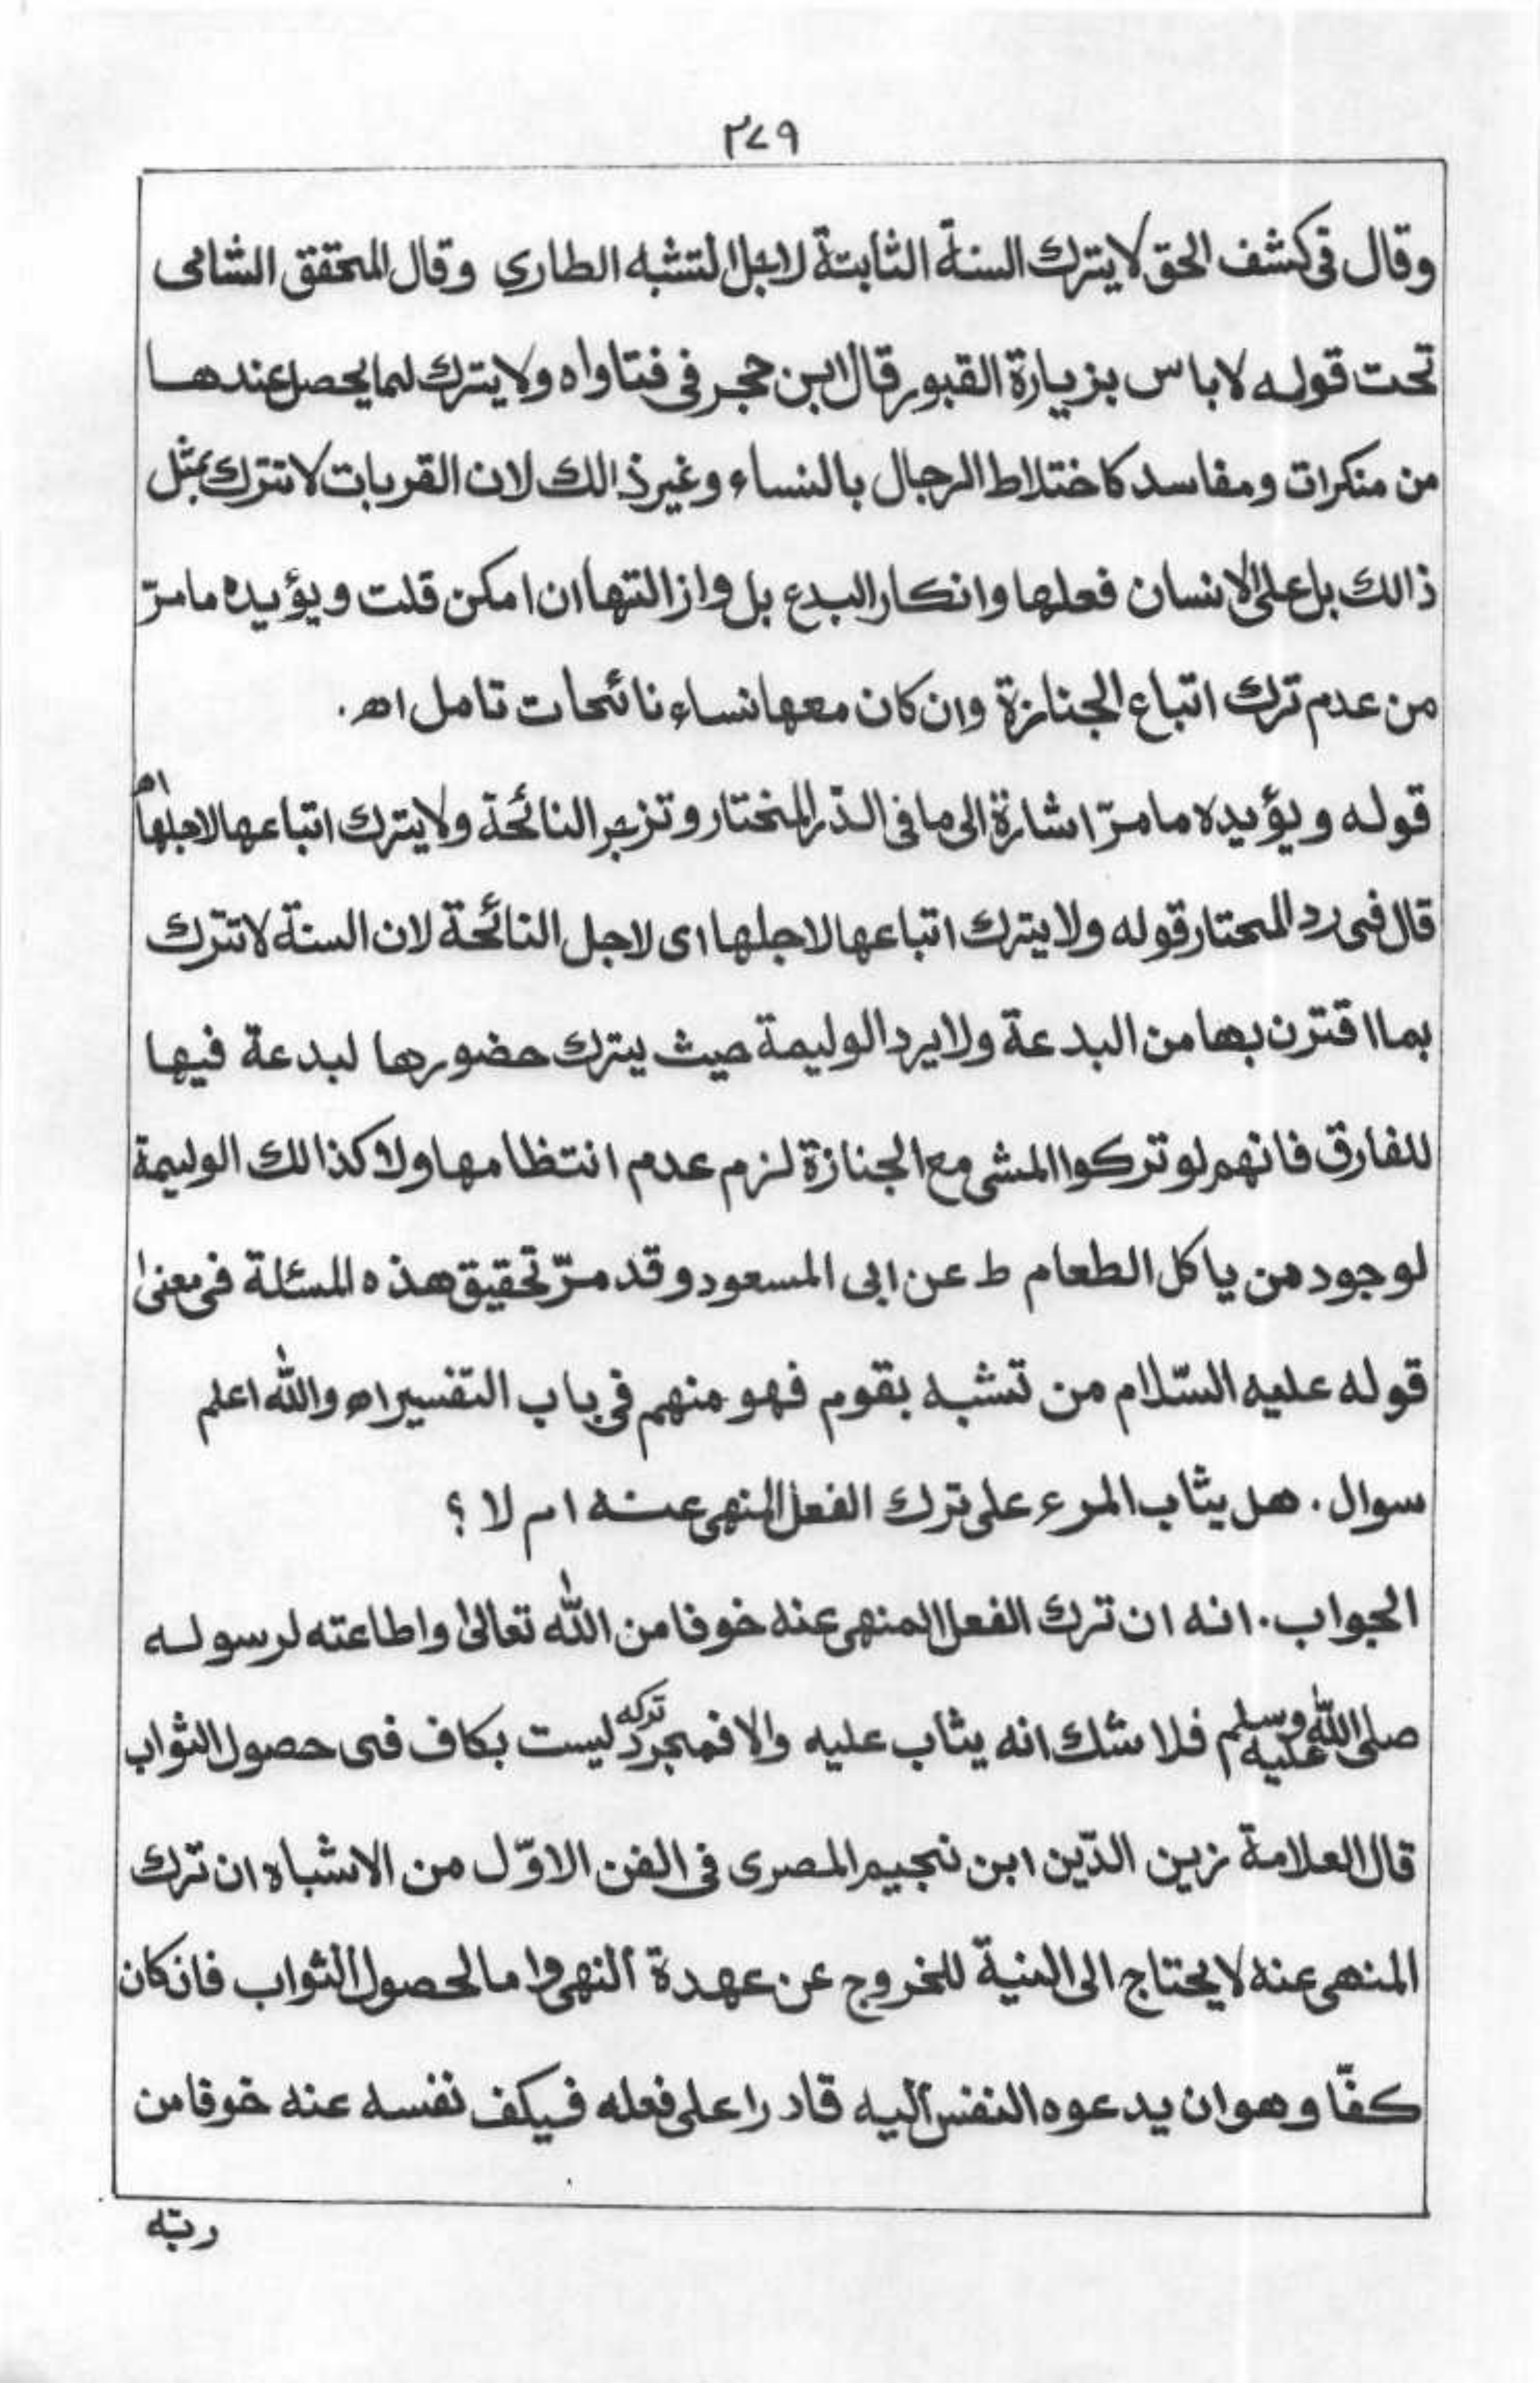 ٢٧٩
وقال فى كشف الحق لا يترك السنة الثابتة لاجل التشبه الطارى وقال المحقق الشامى
تحت قوله لا باس بزيارة القبور قال ابن حجر فى فتاواه ولا يترك لما يحصل عندها
من منكرات ومفاسد كاختلاط الرجال بالنساء وغير ذالك لان القربات لا تترك بمثل
ذالك بل على الانسان فعلها وانكار البدع بل وازالتها ان امكن قلت ويؤيده مامرّ
من عدم ترك اتباع الجنازة وان كان معها نساء نائحات تامل اھ.
قوله ويؤيده مامرّ اشارة الى ما فى الدّر المختار وتزجر النائحة ولا يترك اتباعها لاجلها اھ
قال فى رد المحتار قوله ولا يترك اتباعها لاجلها اى لاجل النائحة لان السنة لا تترك
بما اقترن بها من البدعة ولا يرد الوليمة حيث يترك حضورها لبدعة فيها
للفارق فانهم لو تركوا المشى مع الجنازة لزم عدم انتظامها ولا كذالك الوليمة
لوجود من ياكل الطعام ط عن ابى المسعود وقد مرّ تحقيق هذه المسئلة فى معنىٰ
قوله عليه السّلام من تشبه بقوم فهو منهم فى باب التفسير اھ والله اعلم
سوال. هل يثاب المرء على ترك الفعل المنهى عنه ام لا ؟
الجواب. انه ان ترك الفعل المنهى عنه خوفا من الله تعالىٰ واطاعته لرسوله
صلى الله عليه وسلم فلا شك انه يثاب عليه والا فمجرد تركه ليست بكاف فى حصول الثواب
قال العلامة زين الدّين ابن نجيم المصرى فى الفن الاوّل من الاشباه ان ترك
المنهى عنه لا يحتاج الى النية للخروج عن عهدة النهى واما لحصول الثواب فان كان
كفّا وهو ان يدعوه النفس اليه قادرا على فعله فيكف نفسه عنه خوفا من
ربّه